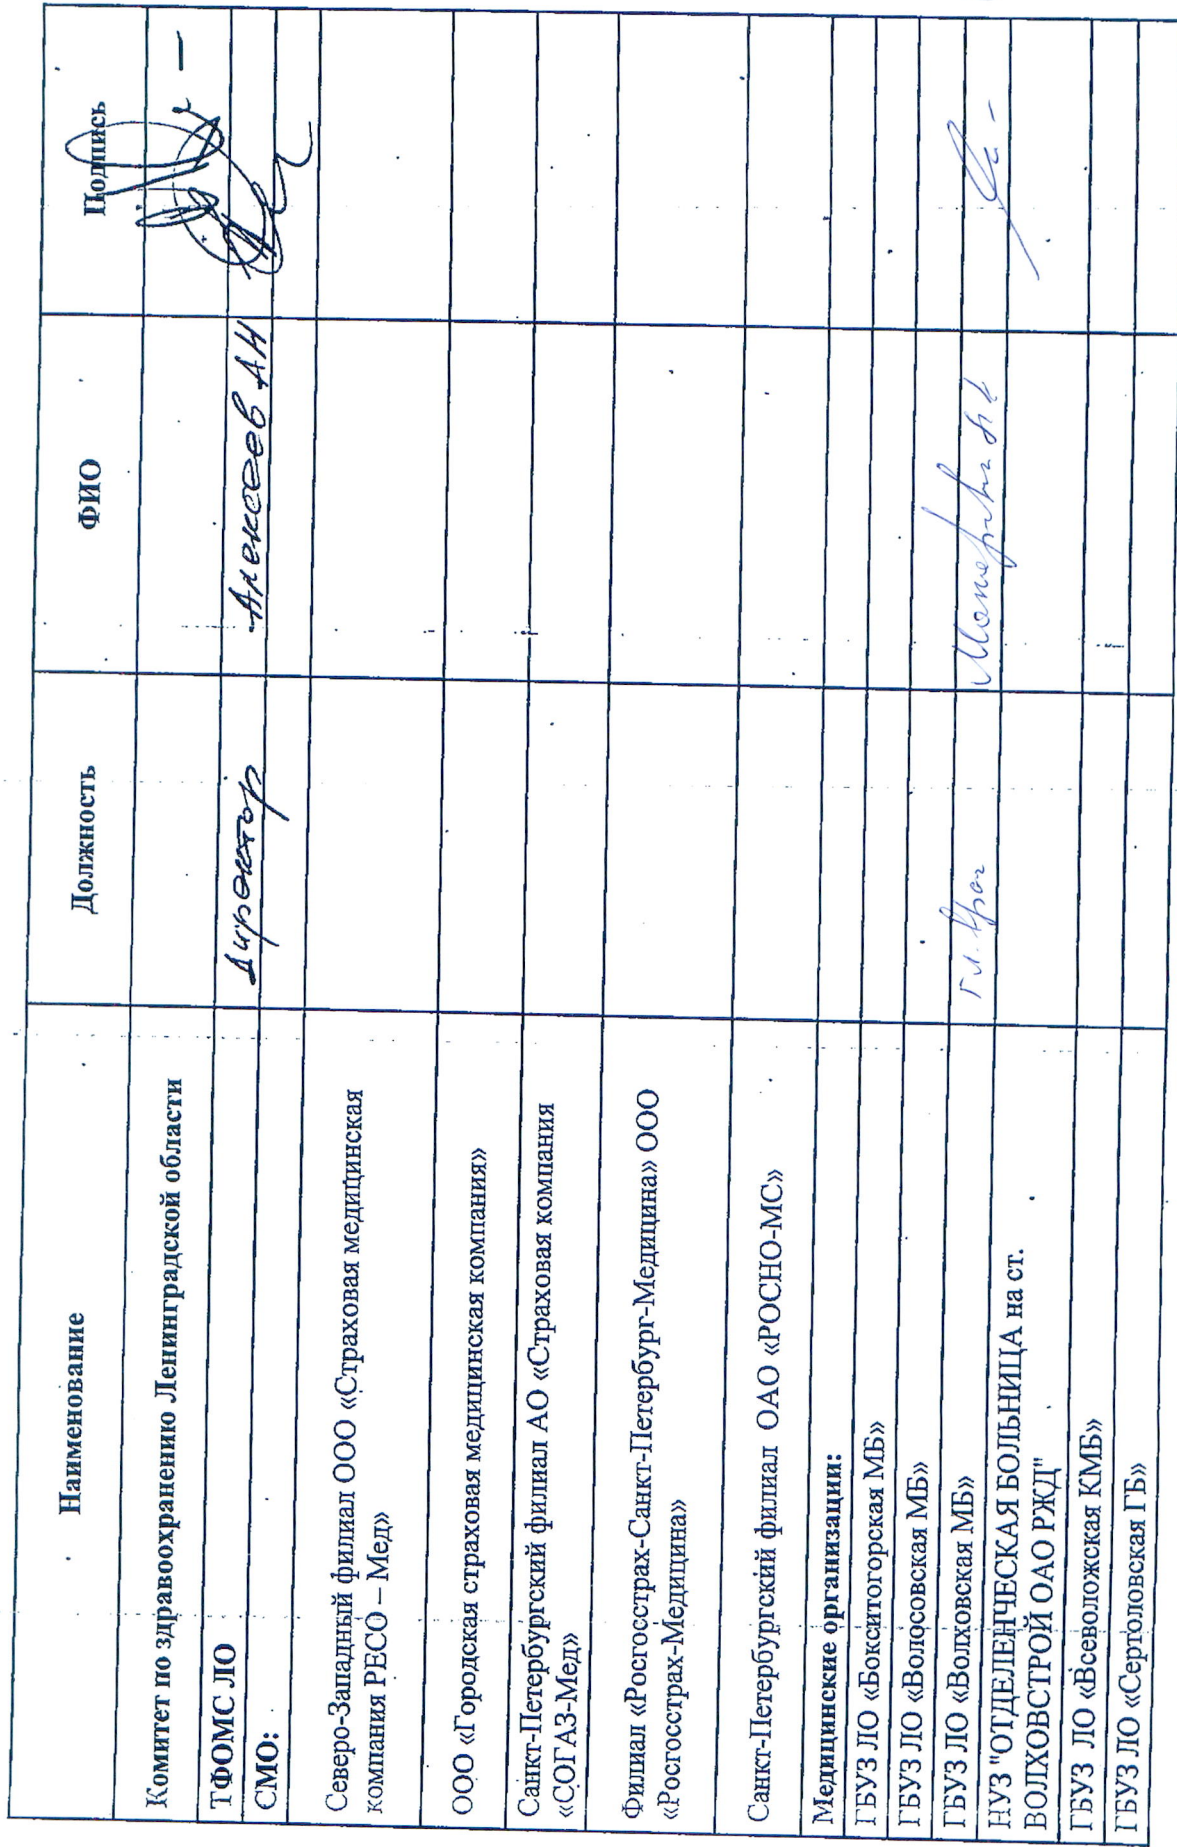 Наименование Должность ФИО Подпись
Комитет по здравоохранению Ленинградской области
ТФОМС ЛО Директор Алексеев АН
СМО:
Северо-Западный филиал ООО «Страховая медицинская
компания РЕСО – Мед»
ООО «Городская страховая медицинская компания»
Санкт-Петербургский филиал АО «Страховая компания
«СОГАЗ-Мед»
Филиал «Росгосстрах-Санкт-Петербург-Медицина» ООО
«Росгосстрах-Медицина»
Санкт-Петербургский филиал ОАО «РОСНО-МС»
Медицинские организации:
ГБУЗ ЛО «Бокситогорская МБ»
ГБУЗ ЛО «Волосовская МБ»
ГБУЗ ЛО «Волховская МБ» Гл. врач
НУЗ "ОТДЕЛЕНЧЕСКАЯ БОЛЬНИЦА на ст.
ВОЛХОВСТРОЙ ОАО РЖД"
ГБУЗ ЛО «Всеволожская КМБ»
ГБУЗ ЛО «Сертоловская ГБ»